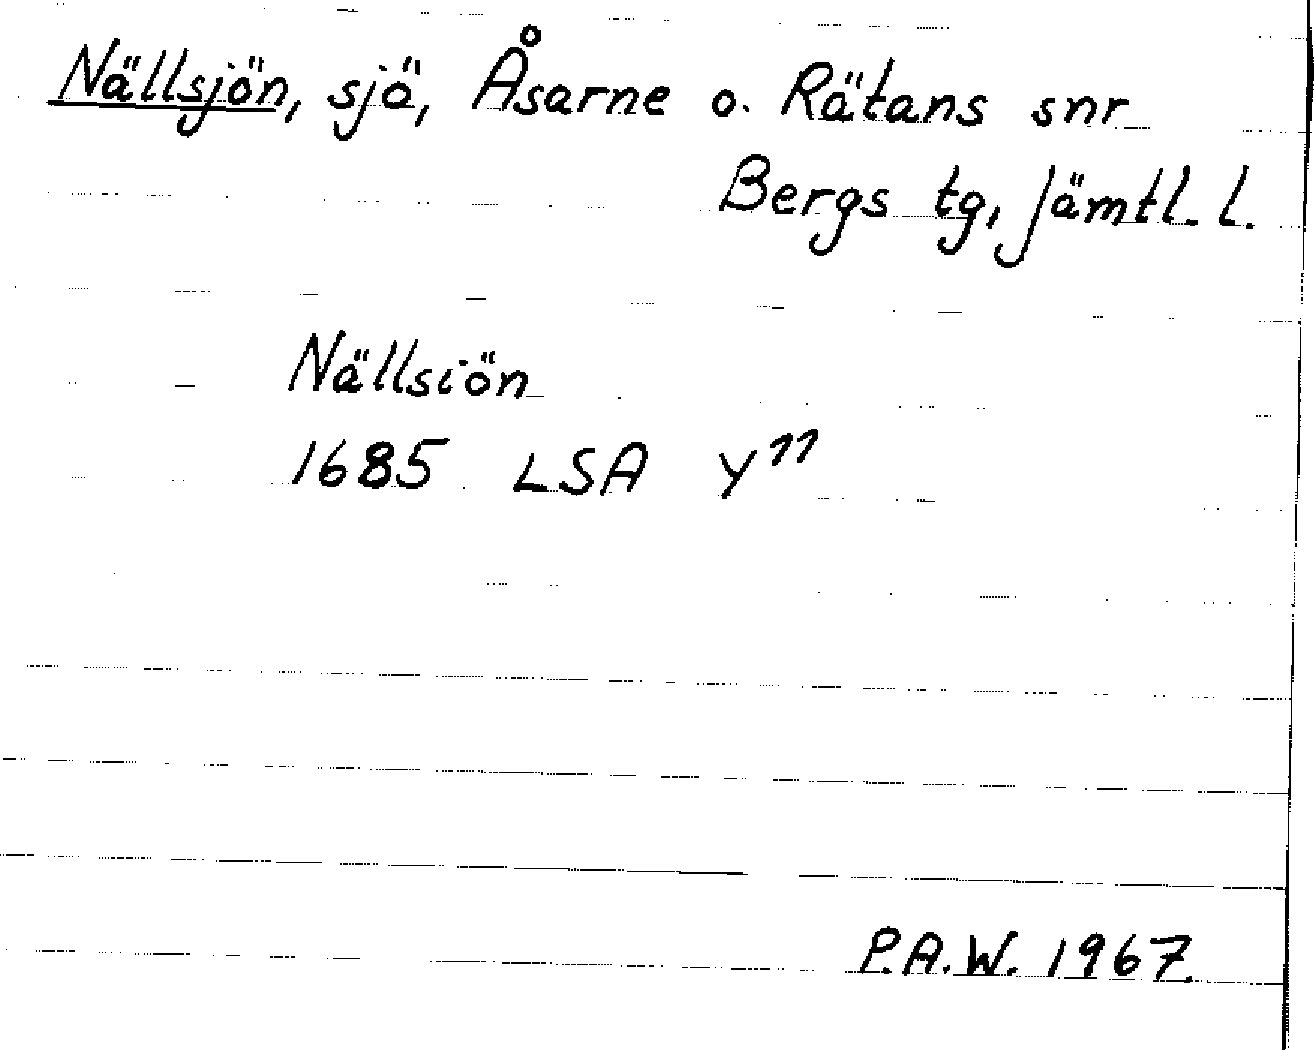 Nällsjön, sjö, Åsarne o. Rätans snr
Bergs tg, Jämtl. l.
Nällsiön
1685 LSA Y 77
P.A.W. 1967